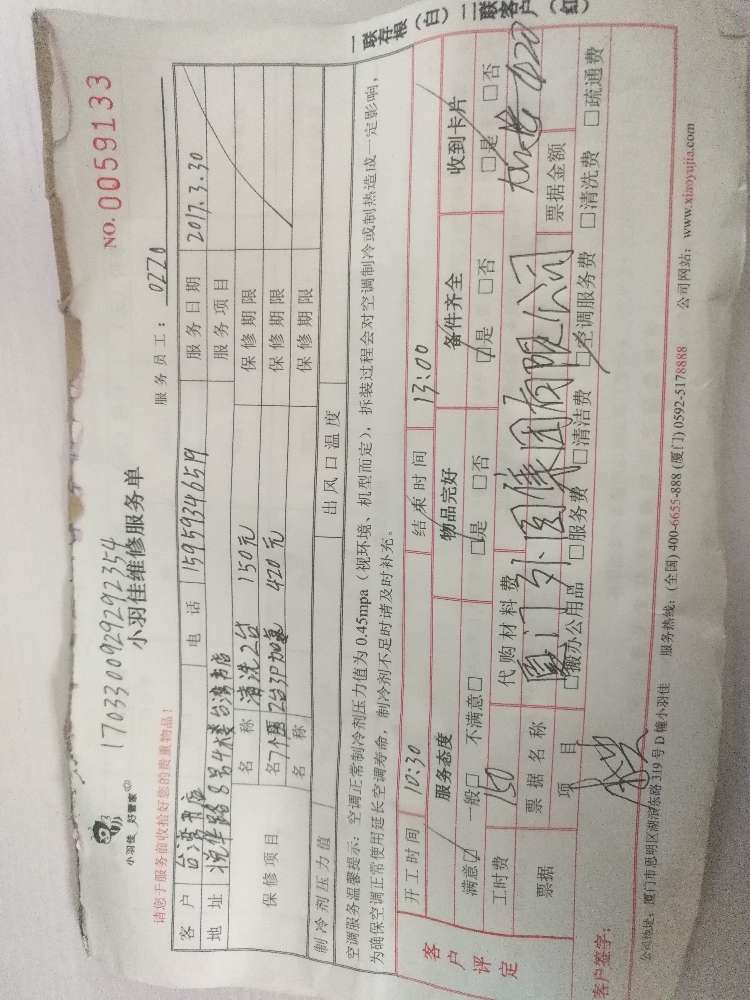 一联存根(白) 二联客户(红)
小羽佳 好管家
17033009292922354
小羽佳维修服务单
NO. 0059133
请您于服务前收拾好您的贵重物品!
服务员工: 0220
客户 台湾书店 电话 15959234659 服务日期 2017.3.30
地址 悦华路8号4楼台湾书店 服务项目
保修项目 名称 清洗2台 150元 保修期限
名 7个圈2台3P加氟 420元 保修期限
名称 保修期限
制冷剂压力值 出风口温度
空调服务温馨提示: 空调正常制冷剂压力值为 0.45mpa (视环境、机型而定), 拆装过程会对空调制冷或制热造成一定影响,
为确保空调正常使用延长空调寿命, 制冷剂不足时请及时补充。
客户评定 开工时间 10:30 结束时间 13:00
服务态度 物品完好 备件齐全 收到卡片
满意☑ 一般□ 不满意□ □是 □否 ☑是 □否 □是 □否
工时费 150 代购材料费 420
票据 票据名称 厦门外图集团有限公司 票据金额
项目 □搬办公用品 □服务费 □清洁费 ☑空调服务费 □清洗费 □疏通费
客户签字:
公司地址: 厦门市思明区湖滨东路 319 号 D 幢小羽佳 服务热线: (全国) 400-6655-888 (厦门) 0592-5178888 公司网站: www.xiaoyujia.com